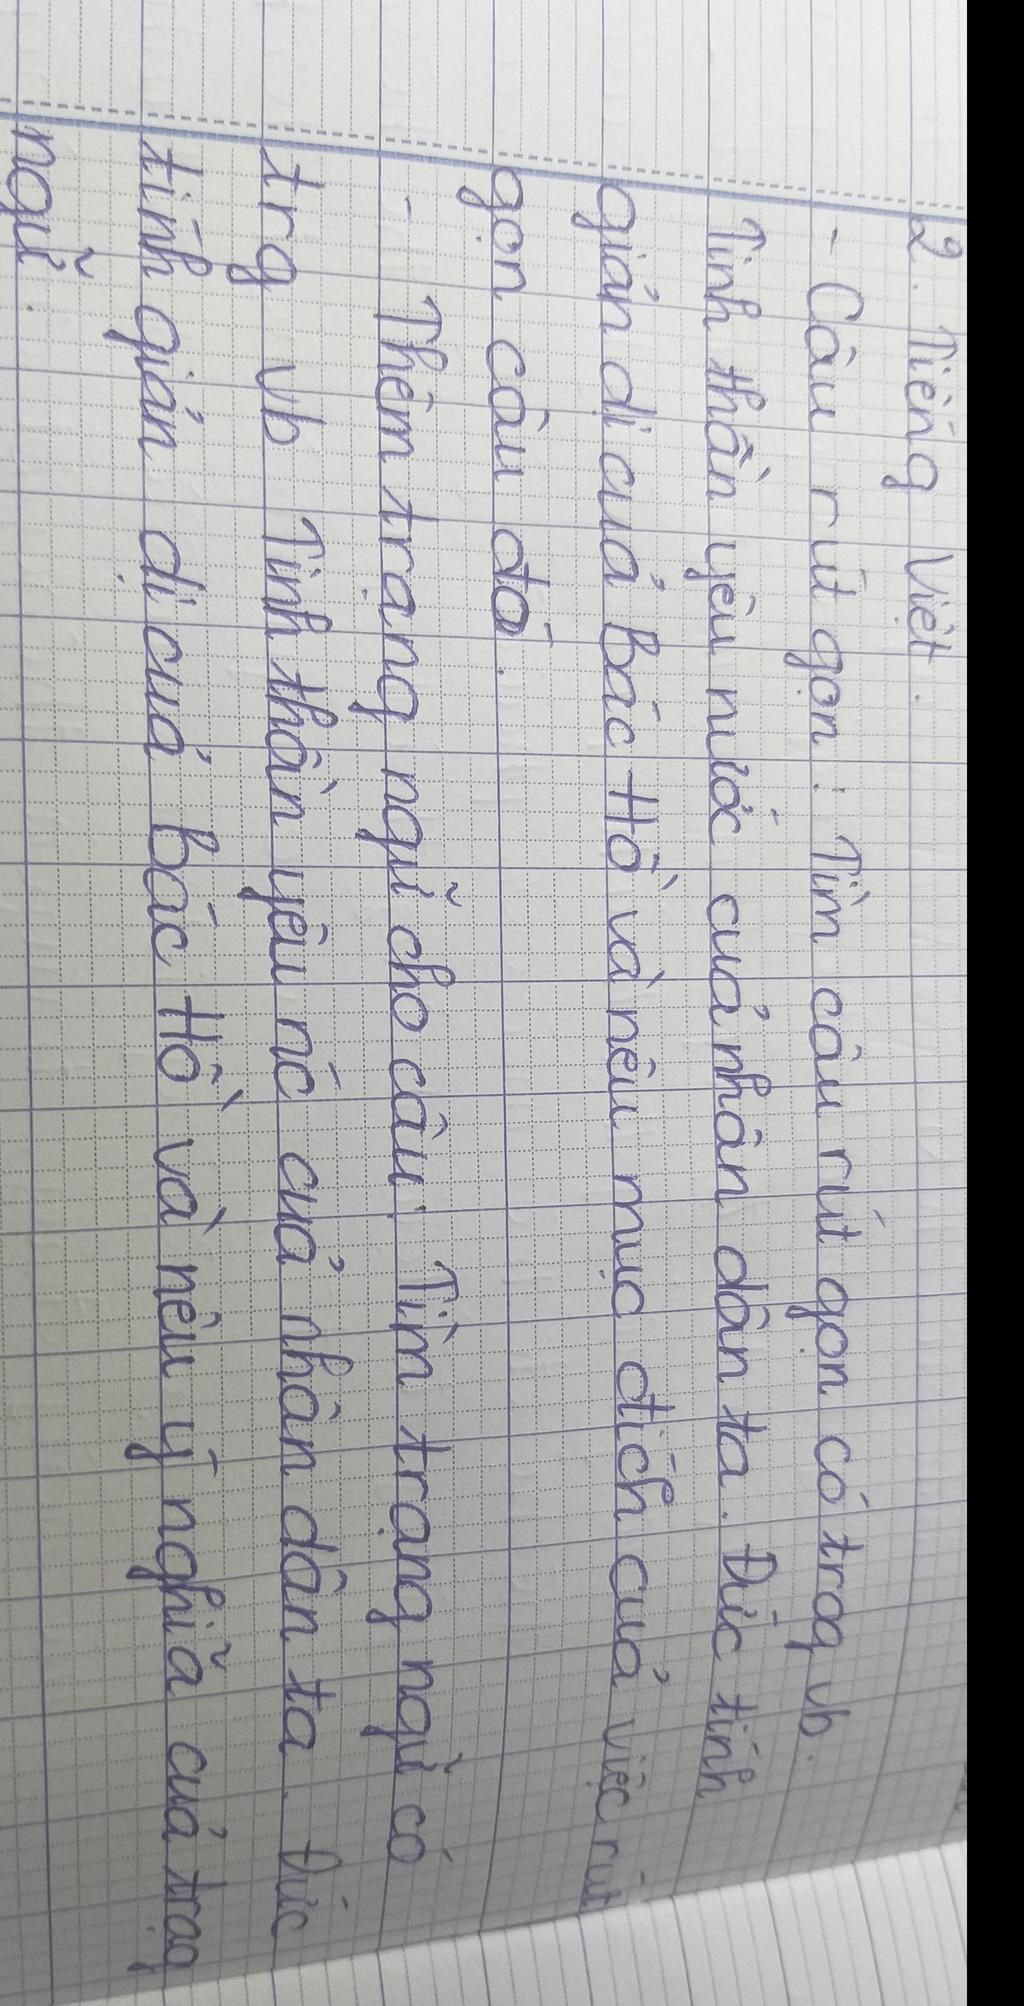 2. Tiếng Việt.
- Câu rút gọn : Tìm câu rút gọn có trog vb.
Tinh thần yêu nước của nhân dân ta. Đức tính
giản dị của Bác Hồ và nêu mục đích của việc rút
gọn câu đó.
- Thêm trạng ngữ cho câu : Tìm trạng ngữ có
trg vb Tinh thần yêu nc của nhân dân ta. Đức
tính giản dị của Bác Hồ và nêu ý nghĩa của trạg
ngữ.